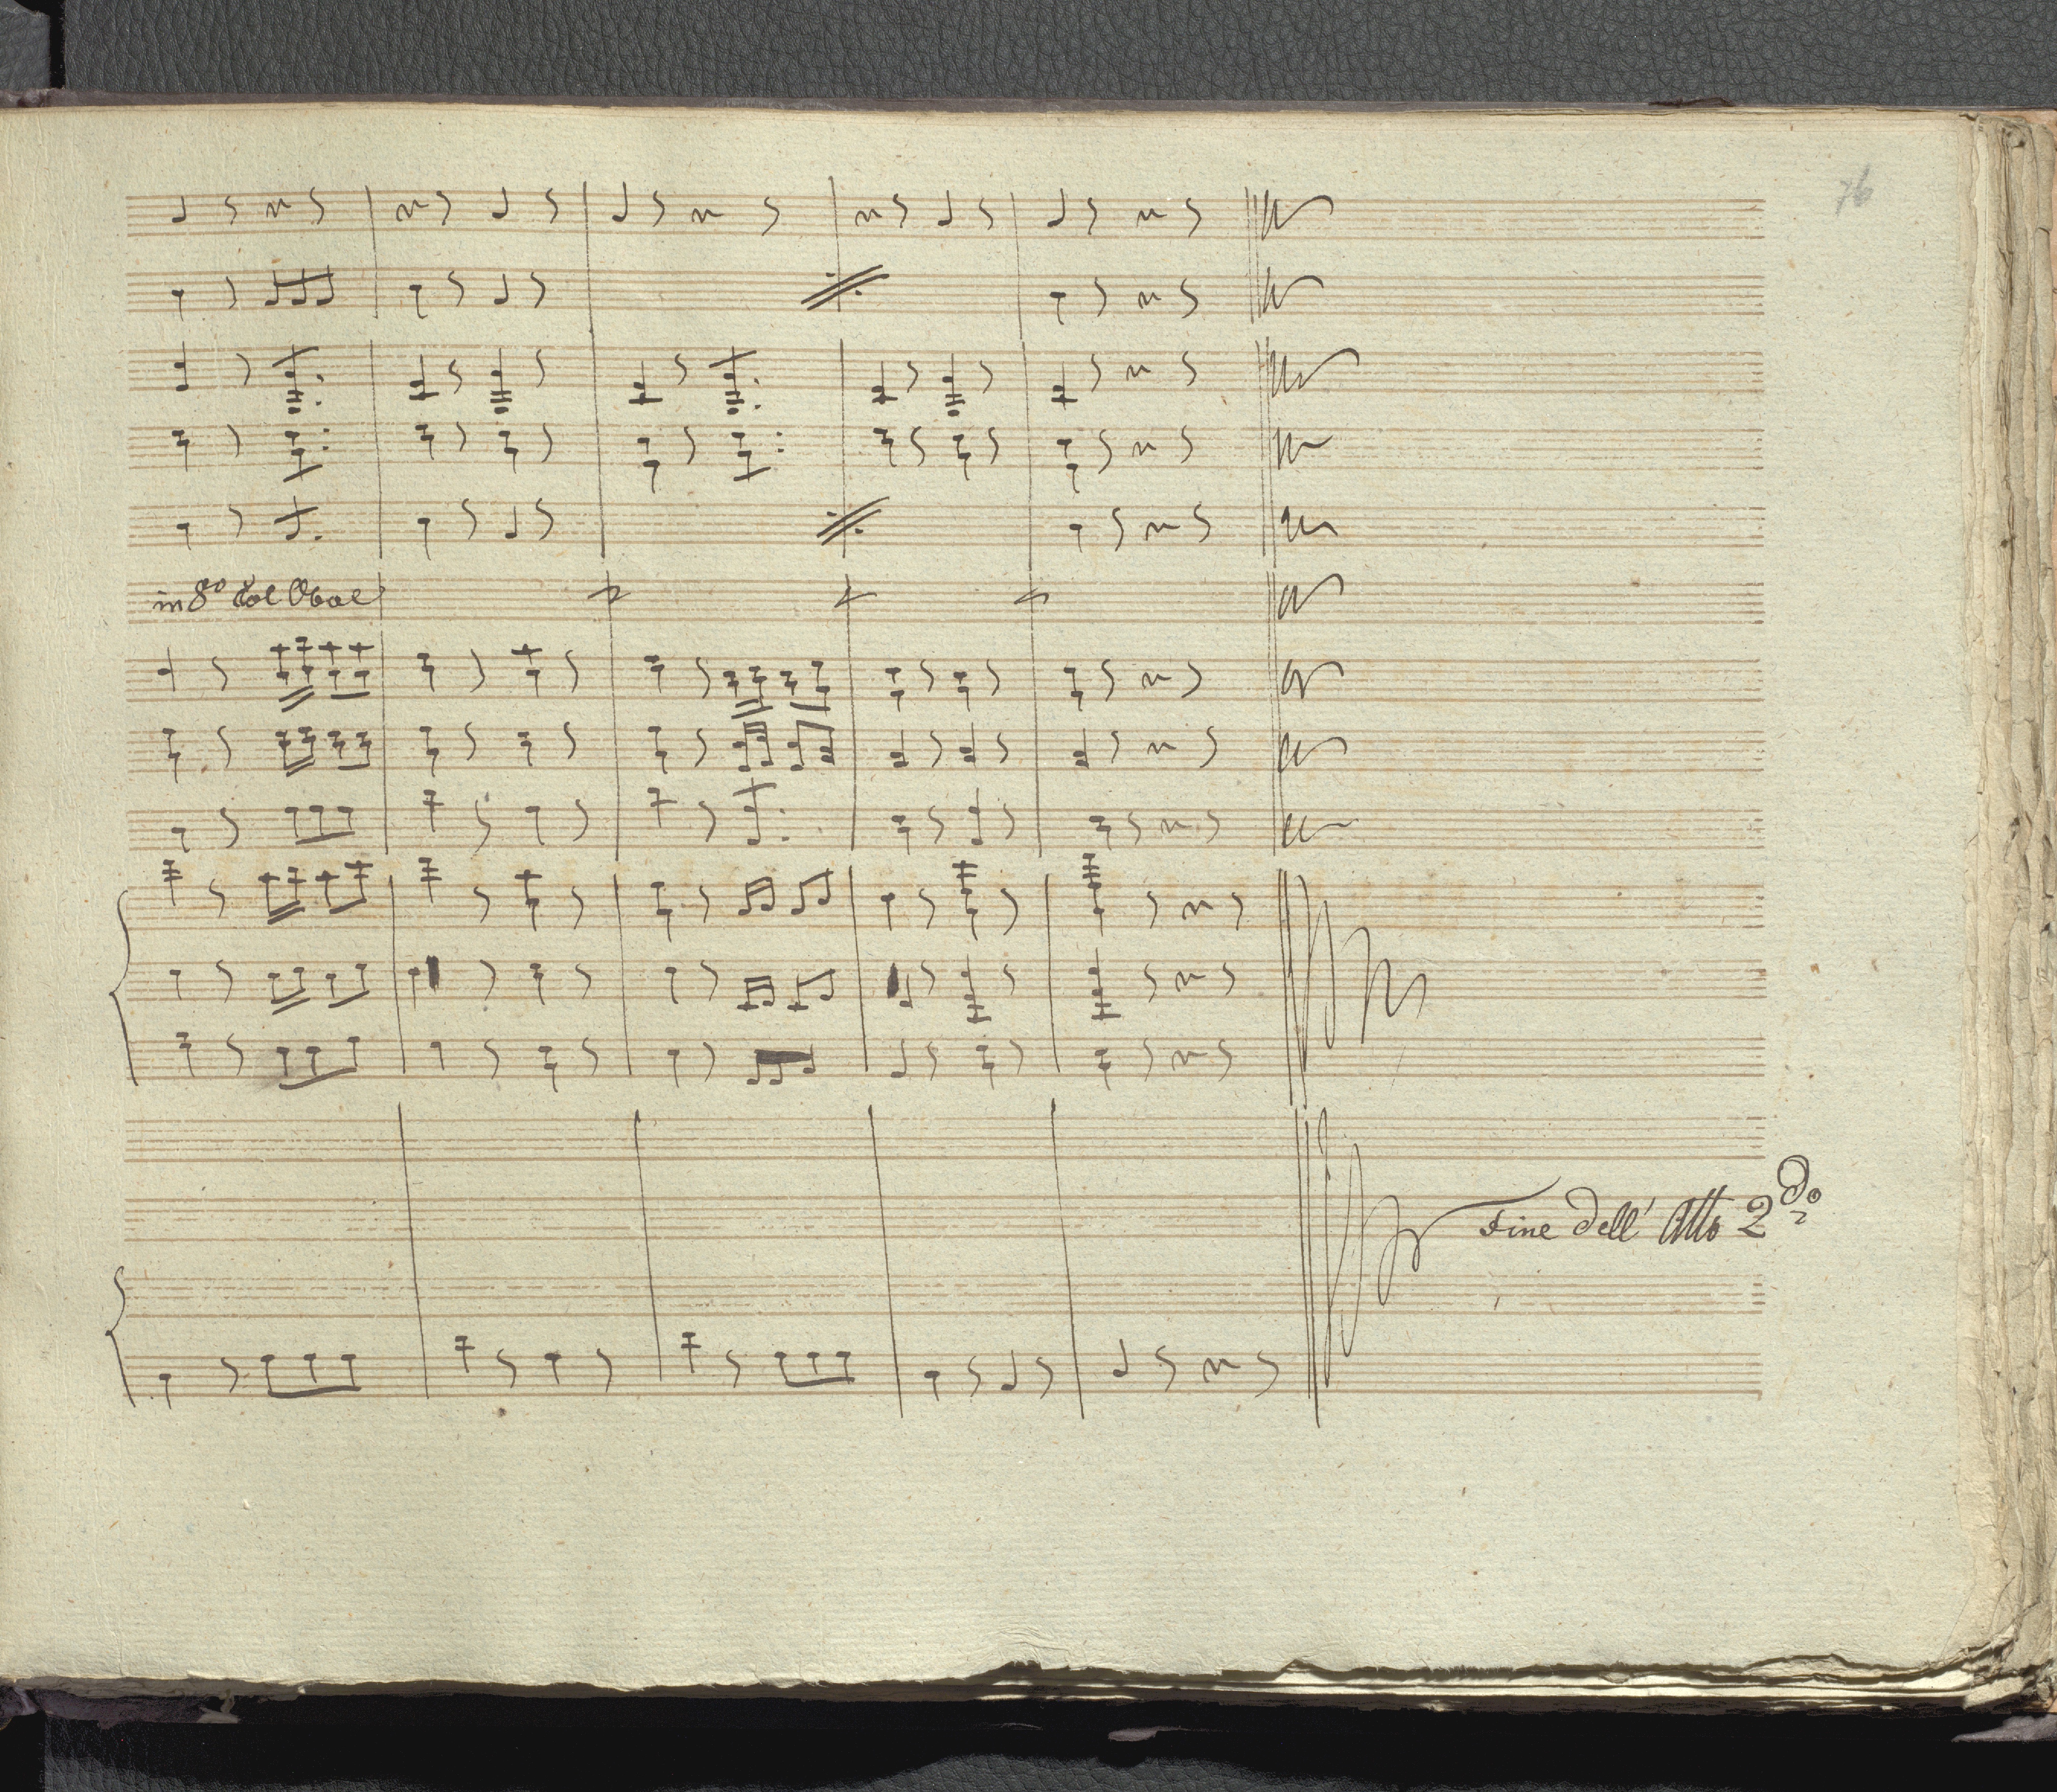 76
in 8º Col Oboe
Fine dell' Atto 2do